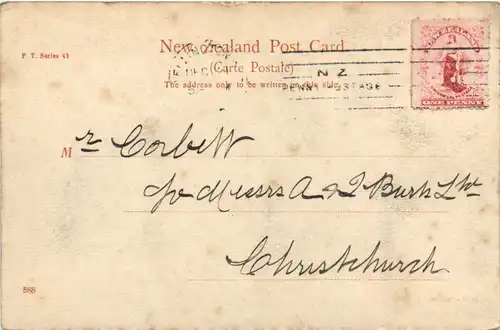 F. T. Series 43
New Zealand Post Card.
(Carte Postale)
The address only to be written on this side.
DEC
N Z
PENNY POSTAGE
NEW ZEALAND
ONE PENNY
Mr Corbett
c/o Messrs A & J Burk Ltd
Christchurch
588